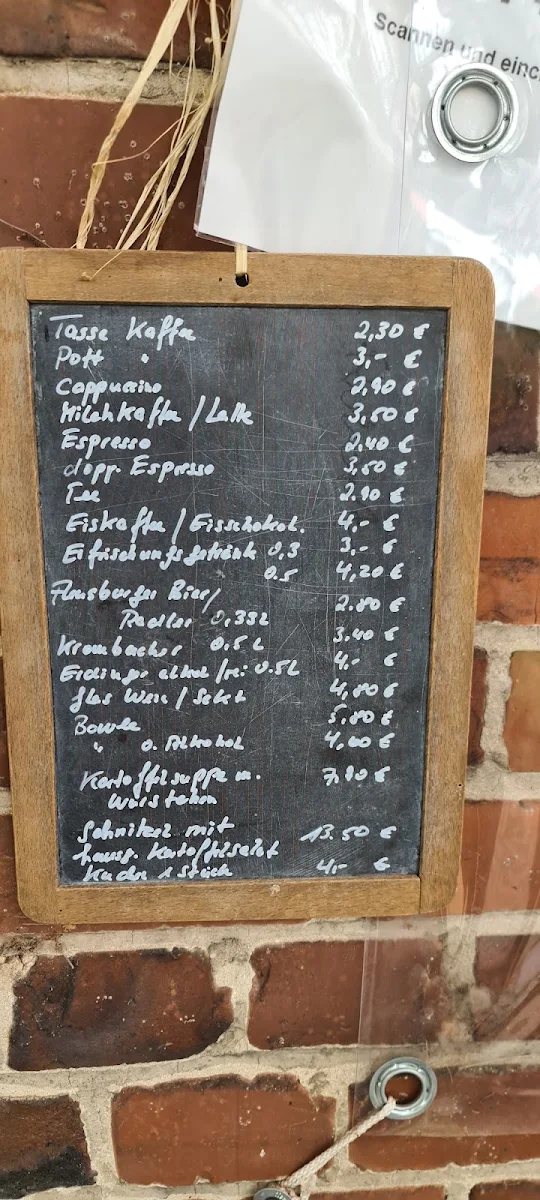 Scannen und einc
Tasse Kaffee 2,30 €
Pott " 3,- €
Cappuccino 2,90 €
Milchkaffee / Latte 3,50 €
Espresso 2.40 €
dopp. Espresso 3,50 €
Tee 2.90 €
Eiskaffee / Eisschokol. 4,- €
Erfrischungsgetränk 0,3 3,- €
0.5 4,20 €
Flensburger Bier/ 2.80 €
Radler 0,33L
Krombacher 0,5 L 3.40 €
Erdinger alkoholfrei 0.5L 4,- €
glas Wein / Sekt 4,80 €
Bowle 5,80 €
" o. Alkohol 4,00 €
Kartoffelsuppe m. 7,90 €
Würstchen
Schnitzel mit 13.50 €
hausg. Kartoffelsalat
Kuchen 1 Stück 4,- €